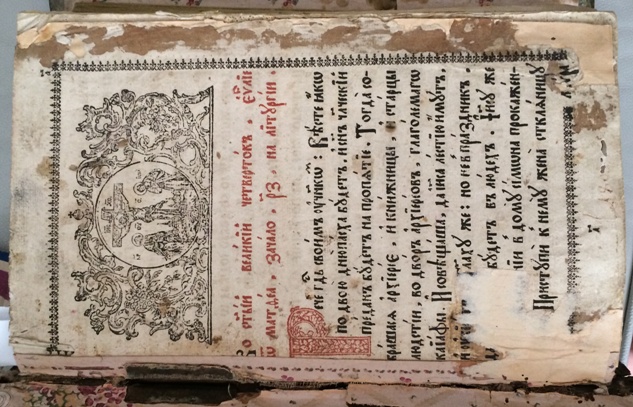 Во ст҃ый великій четвертокъ, еѵ҃ліе
Матѳеа, зачало, р҃з, на літꙋргіи.
Рече гдь своимъ ꙋчнкѡм: Вѣсте якѡ
по двою дню пасха бꙋдетъ, и сн҃ъ чл҃чкій
преданъ бꙋдетъ на пропятіе. Тогда со
брашася архіерее, и книжницы, и старцы
людстіи, во дворъ архіереовъ, глаголемагѡ
Каіафы. И совѣщаша, да Іиса лестію имꙋтъ,
же: но не в праздникъ,
бꙋдетъ в людех. Іисꙋ же
в домꙋ Симона прокаженна
Пристꙋпи к немꙋ жена сткляницꙋ